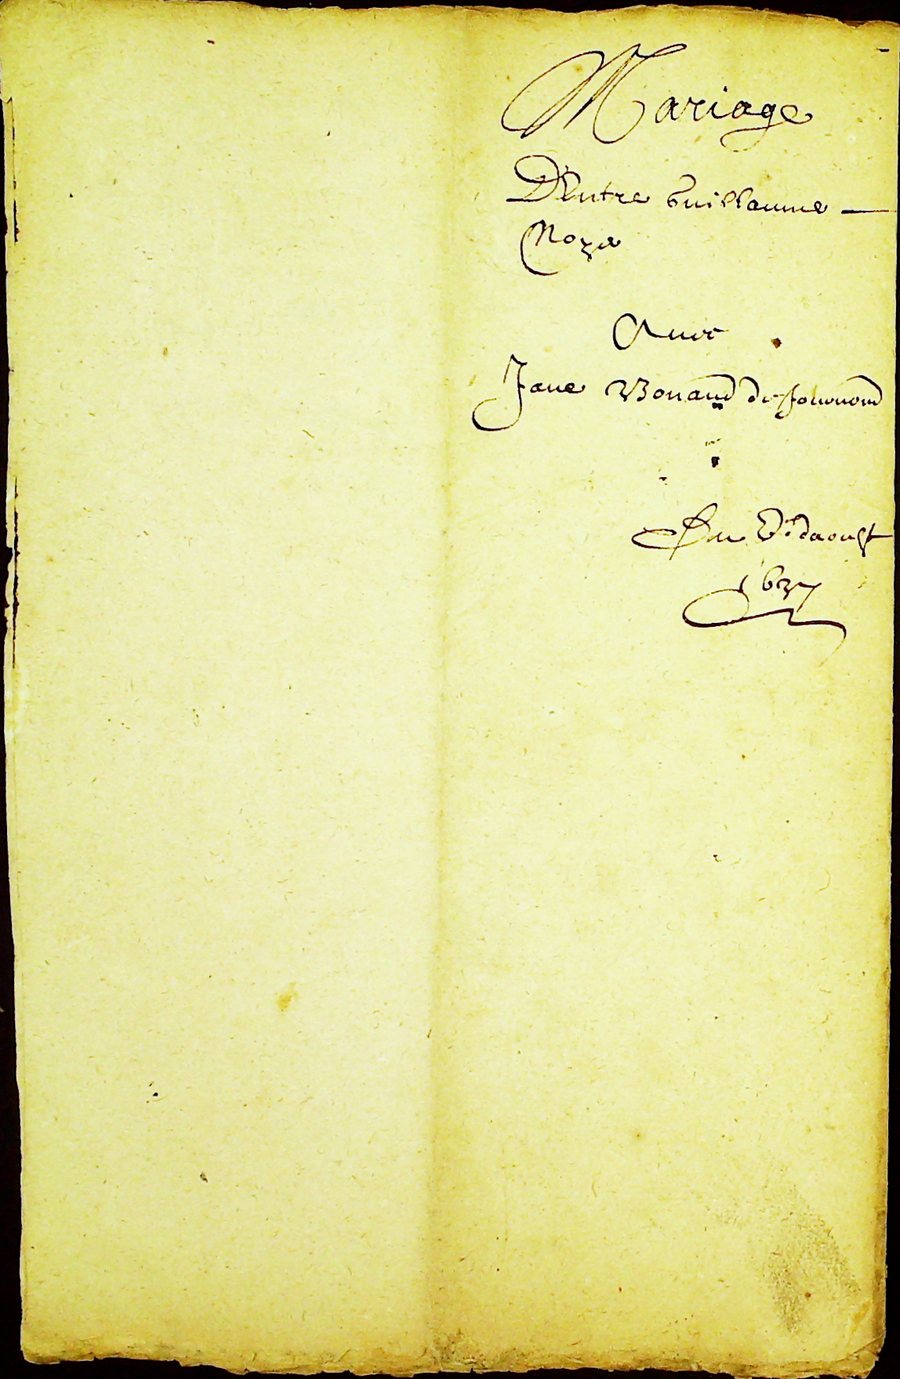 Mariage
D'Entre Guillaume
Noze
Avec
Jane Bonand de
Du d'aoust
1637